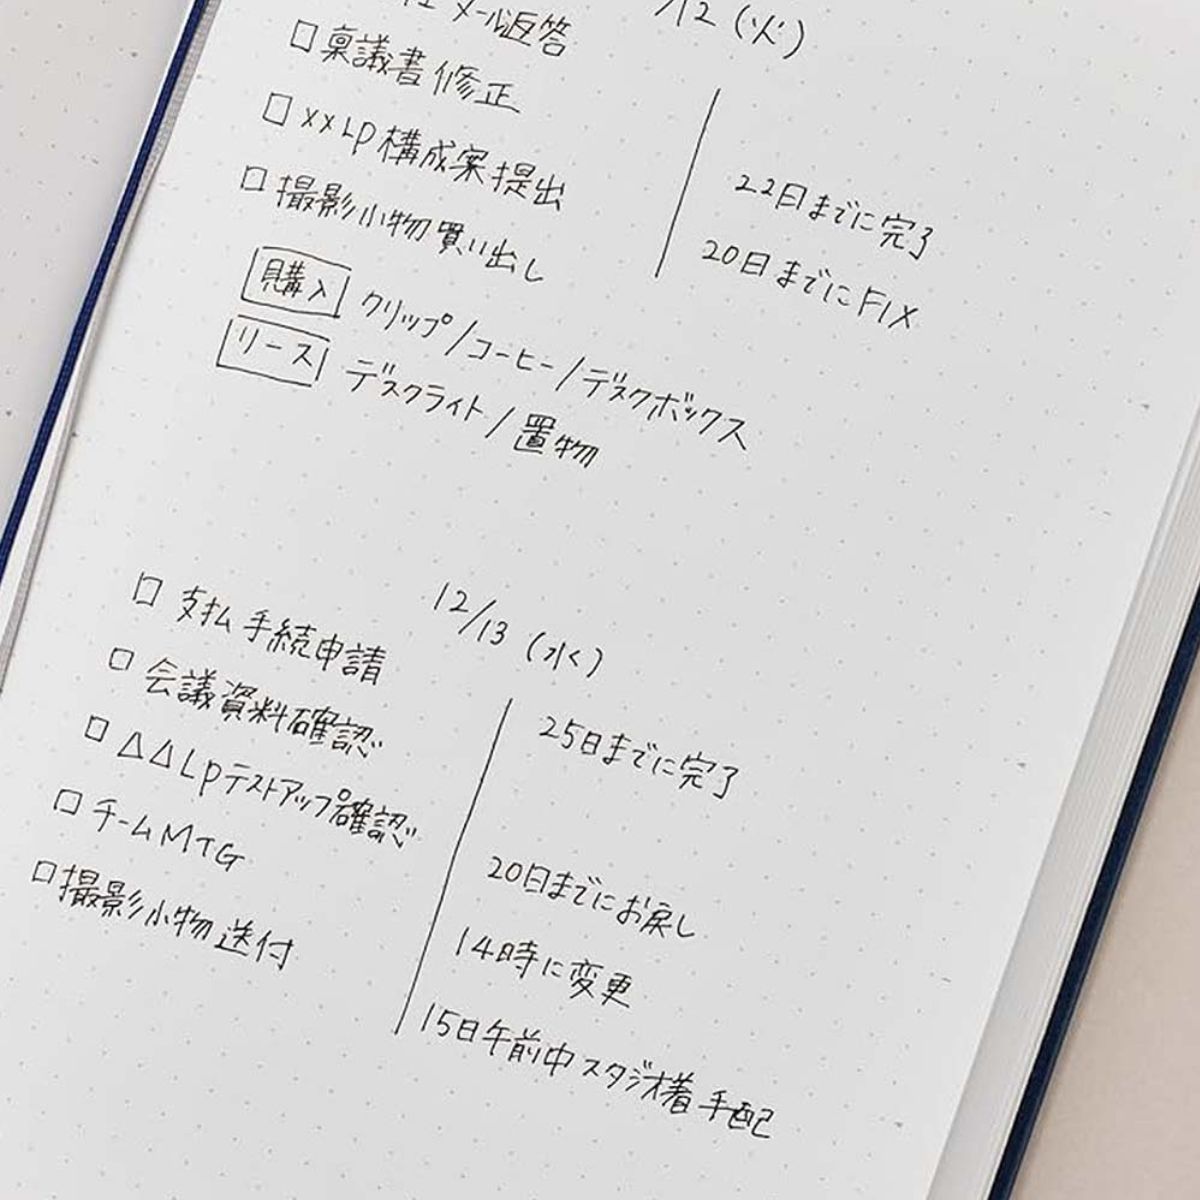 /12 (火)
メール返答
□ 稟議書修正
□ ××LP構成案提出 22日までに完了
□ 撮影小物買い出し 20日までにFIX
購入 クリップ/コーヒー/デスクボックス
リース デスクライト/置物
12/13 (水)
□ 支払手続申請 25日までに完了
□ 会議資料確認
□ △△LPテストアップ確認 20日までにお戻し
□ チームMTG 14時に変更
□ 撮影小物送付 15日午前中スタジオ着手配